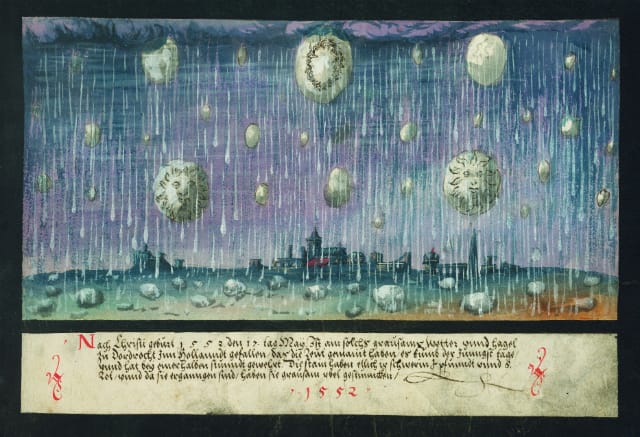 Nach Christi geburt 1552 den 17 tag May. Ist ain solchs grausams wetter vnnd hagel
zu Dordrecht Inn Hollanndt gefallen, das die leut gemaint haben es kumb der Jungst tage
vnnd hat bey einer halben stunndt geweret. Die stain haben etlich in schwern pfundt vnnd 8
Lot, vnnd da sie erganngen sind, haben sie grausam vbel gestunckhen /
· 1552 ·